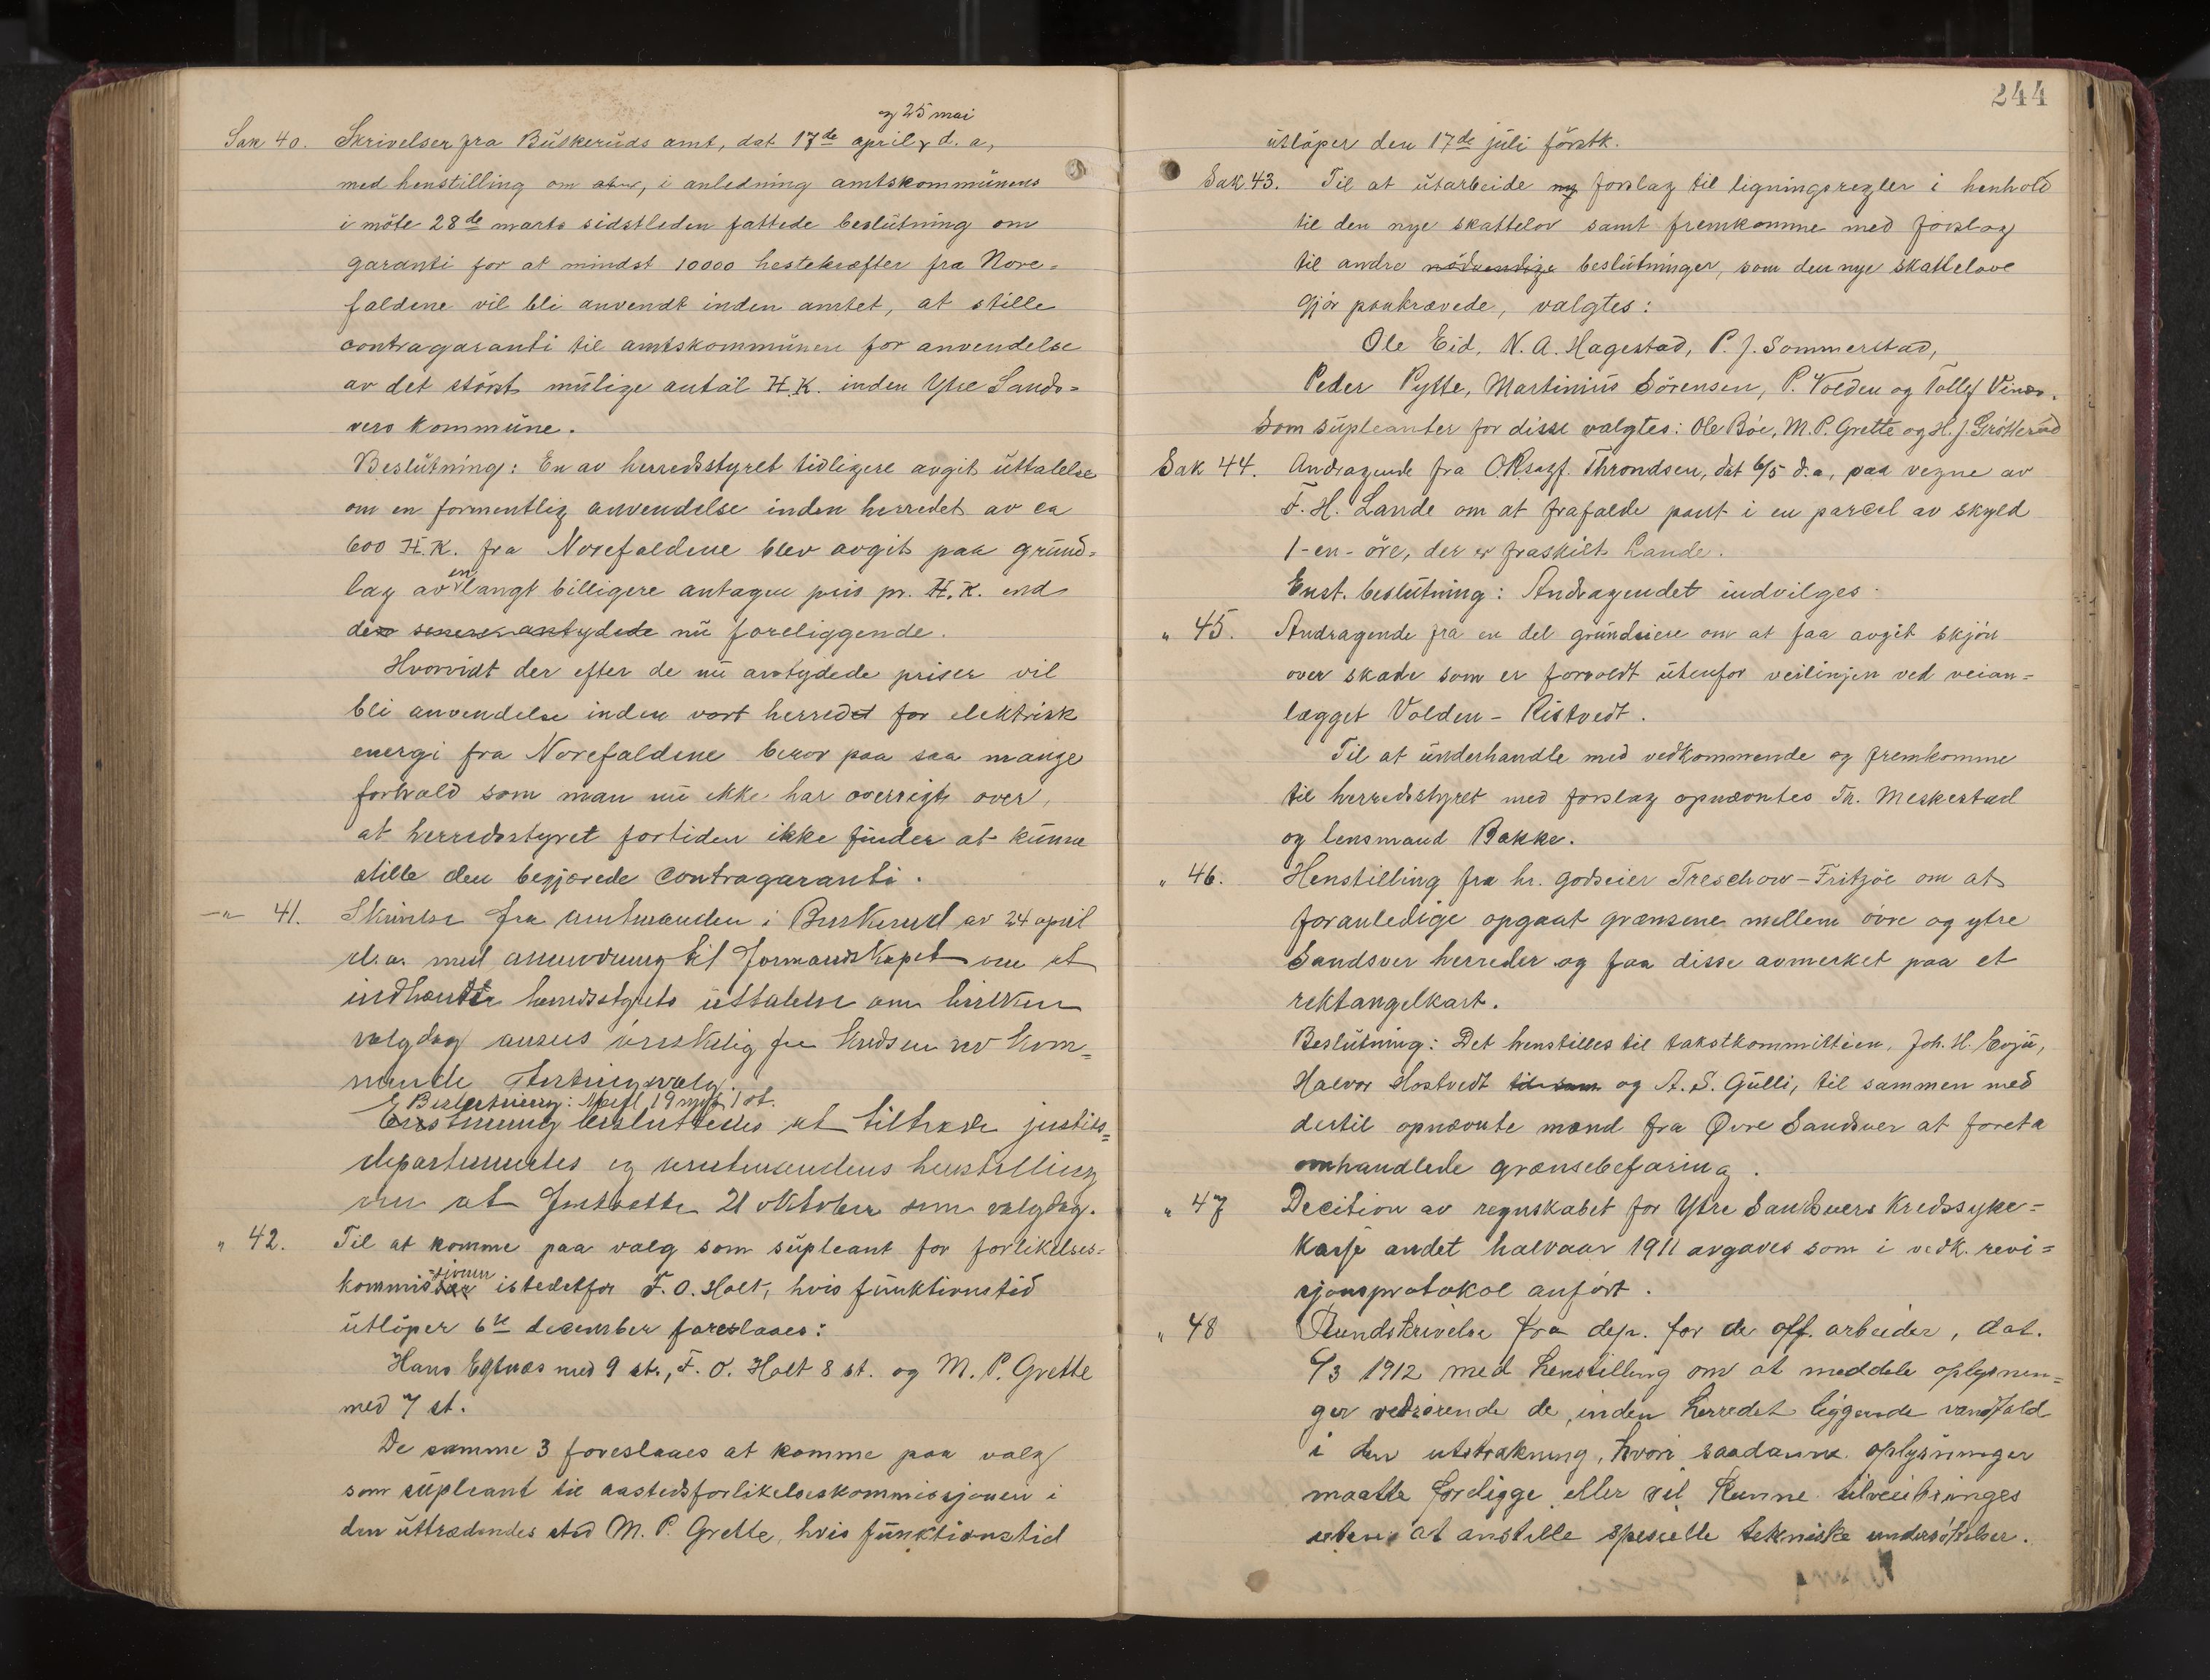 og 25 mai
Sak 40. Skrivelser fra Buskeruds amt, dat 17de april d. a,
med henstilling om at, i anledning amtskommunens
i møte 28de marts sidstleden fattede beslutning om
garanti for at mindst 10000 hestekræfter fra Nore=
faldene vil bli anvendt inden amtet, at stille
contragaranti til amtskommunen for anvendelse
av det størst mulige antal H.K. inden Ytre Sands=
vers kommune.
Beslutning: En av herredsstyret tidligere avgit uttalelse
om en formentlig anvendelse inden herredet av ca
600 H.K. fra Norefaldene blev avgit paa grund=
lag av en langt billigere antagen pris pr. H.K. end
den senere antydede nu foreliggende.
Hvorvidt der efter de nu antydede priser vil
bli anvendelse inden vort herred for elektrisk
energi fra Norefaldene beror paa saa mange
forhold som man nu ikke har oversigt over,
at herredsstyret fortiden ikke finder at kunne
stille den begjærede contragaranti.
—"— 41. Skrivelse fra amtmanden i Buskerud av 24 april
d.a. med anmodning til formandskapet om at
indhente herredsstyrets uttalelse om hvilken
valgdag ansees ønskelig for kredsen ved kom=
mende stortingsvalg.
E Beslutning: 19 mot 1 st.
Enstemmig besluttedes at tiltræde justits=
departementets og amtmandens henstilling
om at fastsætte 21 oktober som valgdag.
" 42. Til at komme paa valg som supleant for forlikelses=
kommissionen istedetfor F. O. Holt, hvis funktionstid
utløper 6te december foreslaaes:
Hans Egtnæs med 9 st., F. O. Holt 8 st. og M. P. Grette
med 7 st.
De samme 3 foreslaaes at komme paa valg
som supleant til aastedsforlikelseskommissjonen i
den uttrædendes sted M. P. Grette, hvis funktionstid
244
utløper den 17de juli førstk.
Sak 43. Til at utarbeide ny forslag til ligningsregler i henhold
til den nye skattelov samt fremkomme med forslag
til andre nødvendige beslutninger, som den nye skattelove
gjør paakrævede, valgtes:
Ole Eid, N. A. Hagestad, P. J. Sommerstad,
Peder Pytte, Martinius Sørensen, P. Volden og Tollef Vinæs.
Som supleanter for disse valgtes: Ole Bøe, M. P. Grette og H. J. Grøtterud
Sak 44. Andragende fra O.R.sagf. Throndsen, dat 6/5 d.a, paa vegne av
F. H. Lande om at frafalde pant i en parcel av skyld
1-en- øre, der er fraskilt Lande.
Enst. beslutning: Andragendet indvilges.
" 45. Andragende fra en del grundeiere om at faa avgit skjøn
over skade som er forvoldt utenfor veilinjen ved veian=
lægget Volden - Ristvedt.
Til at underhandle med vedkommende og fremkomme
til herredsstyret med forslag opnævntes Th. Meskestad
og lensmand Bakke.
" 46. Henstilling fra hr. godseier Treschow-Fritzøe om at
foranledige opgaat grænsene mellem øvre og ytre
Sandsver herreder og faa disse avmerket paa et
rektangelkart.
Beslutning: Det henstilles til takstkommitteen, Joh. H. Evju,
Halvor Hostvedt til sam og A. S. Gulli, til sammen med
dertil opnævnte mænd fra Øvre Sandsver at foreta
omhandlede grænsebefaring.
" 47 Decition av regnskabet for Ytre Sandsvers kredssyke=
kasse andet halvaar 1911 avgaves som i vedk. revi=
sjonsprotokol anført.
" 48 Rundskrivelse fra dep. for de off. arbeider, dat.
/3 1912 med henstilling om at meddele oplysnin=
ger vedrørende de inden herredet liggende vandfald
i den utstrækning, hvori saadanne oplysninger
maatte foreligge eller vil kunne tilveiebringes
uten at anstille specielle tekniske undersøkelser.